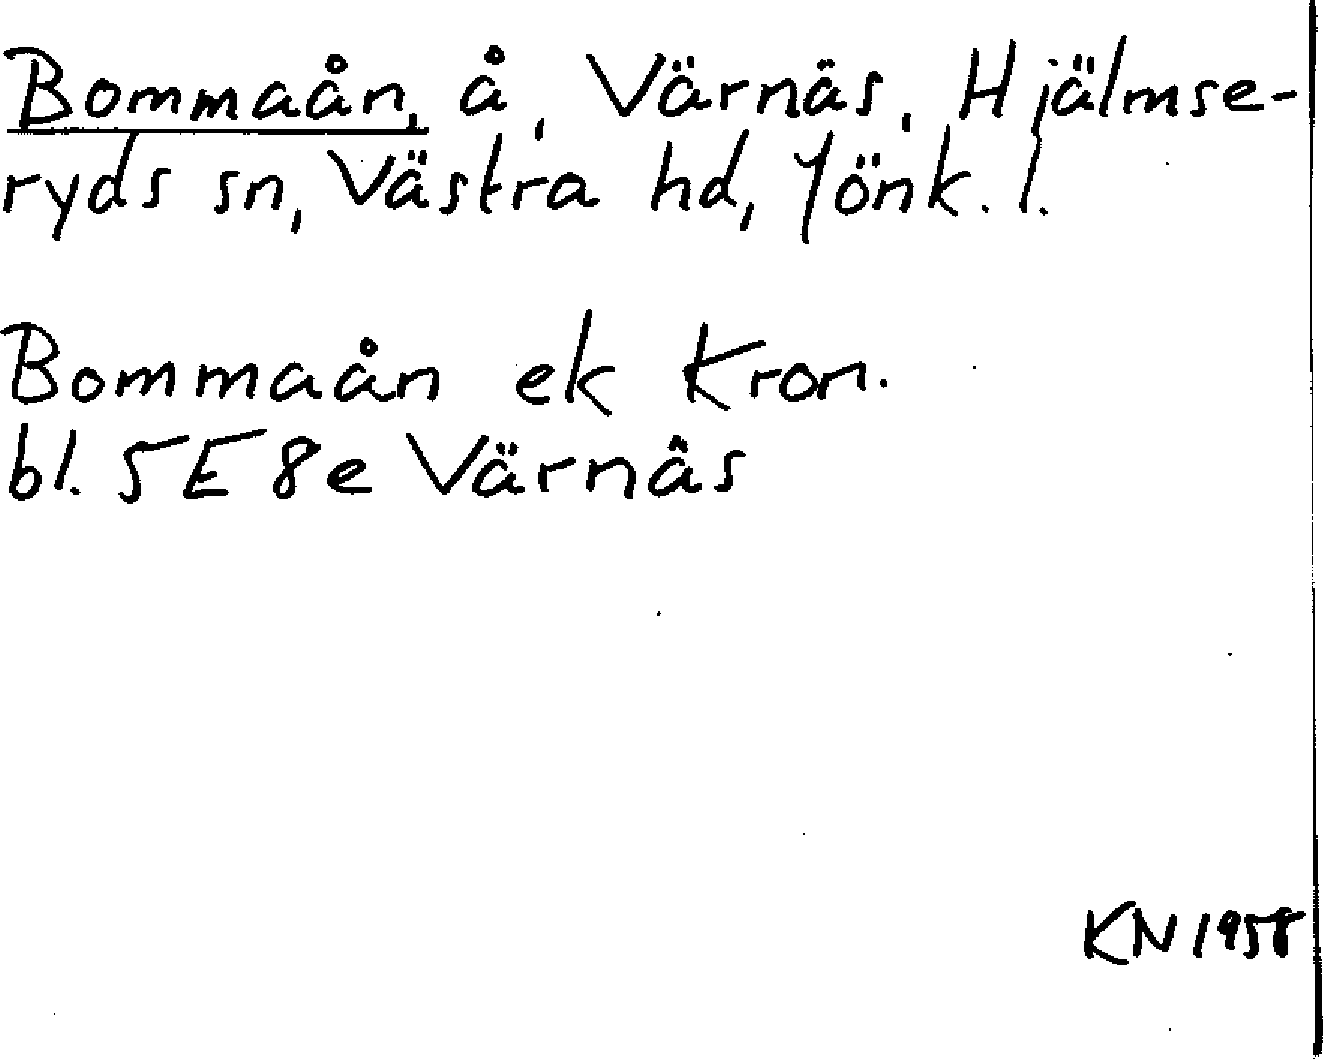 Bommaån, å, Värnäs, Hjälmse-
ryds sn, Västra hd, Jönk. l.
Bommaån ek Kron.
bl. 5E8e Värnäs
KN 1958